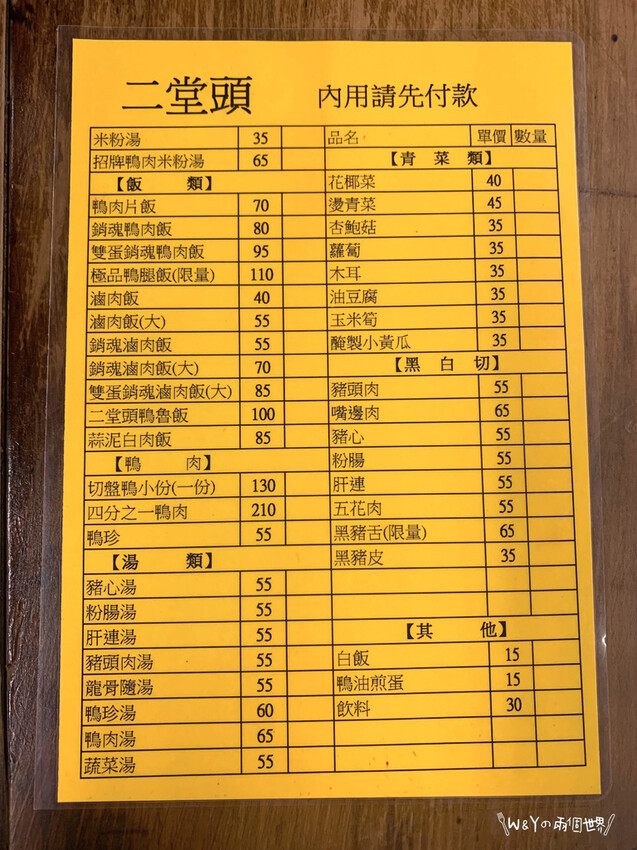 二堂頭 內用請先付款
米粉湯 35
招牌鴨肉米粉湯 65
【飯 類】
鴨肉片飯 70
銷魂鴨肉飯 80
雙蛋銷魂鴨肉飯 95
極品鴨腿飯(限量) 110
滷肉飯 40
滷肉飯(大) 55
銷魂滷肉飯 55
銷魂滷肉飯(大) 70
雙蛋銷魂滷肉飯(大) 85
二堂頭鴨魯飯 100
蒜泥白肉飯 85
【鴨 肉】
切盤鴨小份(一份) 130
四分之一鴨肉 210
鴨珍 55
【湯 類】
豬心湯 55
粉腸湯 55
肝連湯 55
豬頭肉湯 55
龍骨隨湯 55
鴨珍湯 60
鴨肉湯 65
蔬菜湯 55
品名 單價 數量
【青 菜 類】
花椰菜 40
燙青菜 45
杏鮑菇 35
蘿蔔 35
木耳 35
油豆腐 35
玉米筍 35
醃製小黃瓜 35
【黑 白 切】
豬頭肉 55
嘴邊肉 65
豬心 55
粉腸 55
肝連 55
五花肉 55
黑豬舌(限量) 65
黑豬皮 35
【其 他】
白飯 15
鴨油煎蛋 15
飲料 30
W&Yの兩個世界